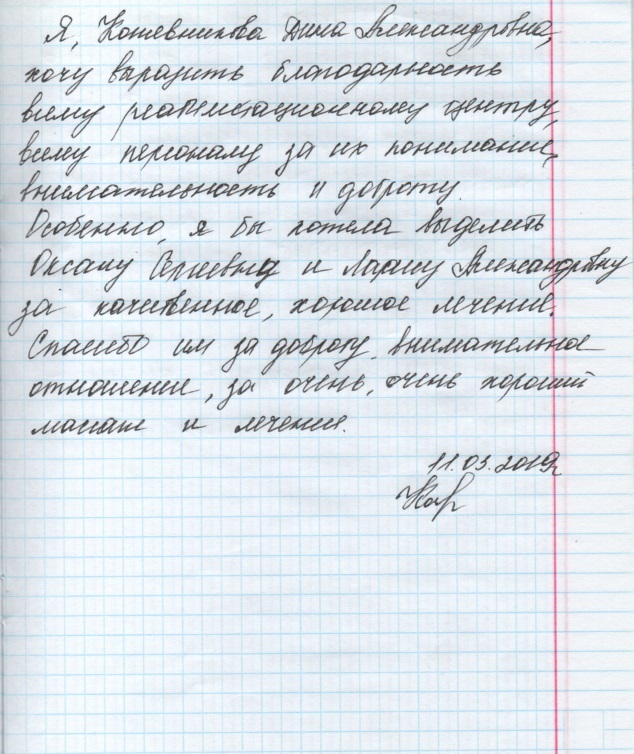 Я, Кожевникова Дина Александровна,
хочу выразить благодарность
всему реабилитационному центру,
всему персоналу за их понимание,
внимательность и доброту.
Особенно, я бы хотела выделить
Оксану и Ларису Александровну
за качественное, хорошое лечение.
Спасибо им за доброту, внимательное
отношение, за очень, очень хороший
массаж и лечение.
11.03.2019г